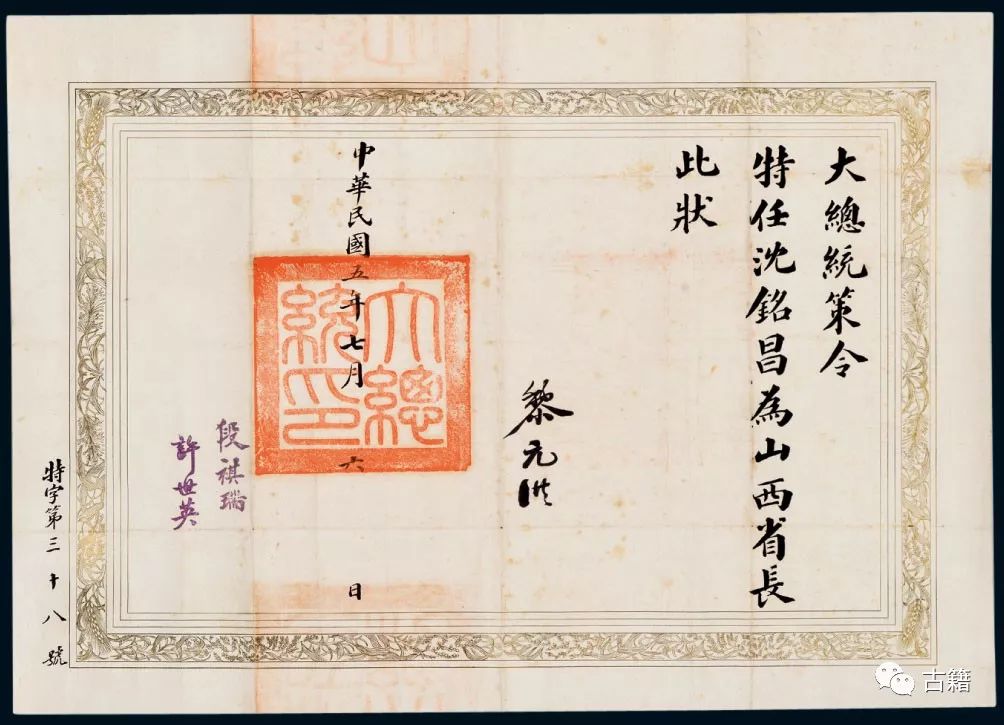 大總統策令
特任沈銘昌為山西省長
此狀
黎元洪
中華民國五年七月六日
大總
統印
段祺瑞
許世英
特字第三十八號
古籍